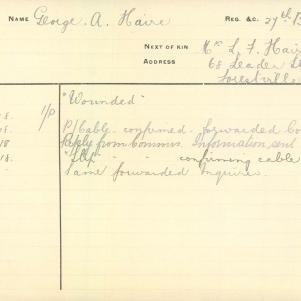 NAME George. A. Haire REG. &C. 27th B
NEXT OF KIN Mr L. F. Hair
ADDRESS 68 Leader St
Forestville
1/P "Wounded"
P/Cable confirmed. forwarded Co
18 Reply from Commrs. Information sent
18. " " confirming cable
Same forwarded Inquirer.